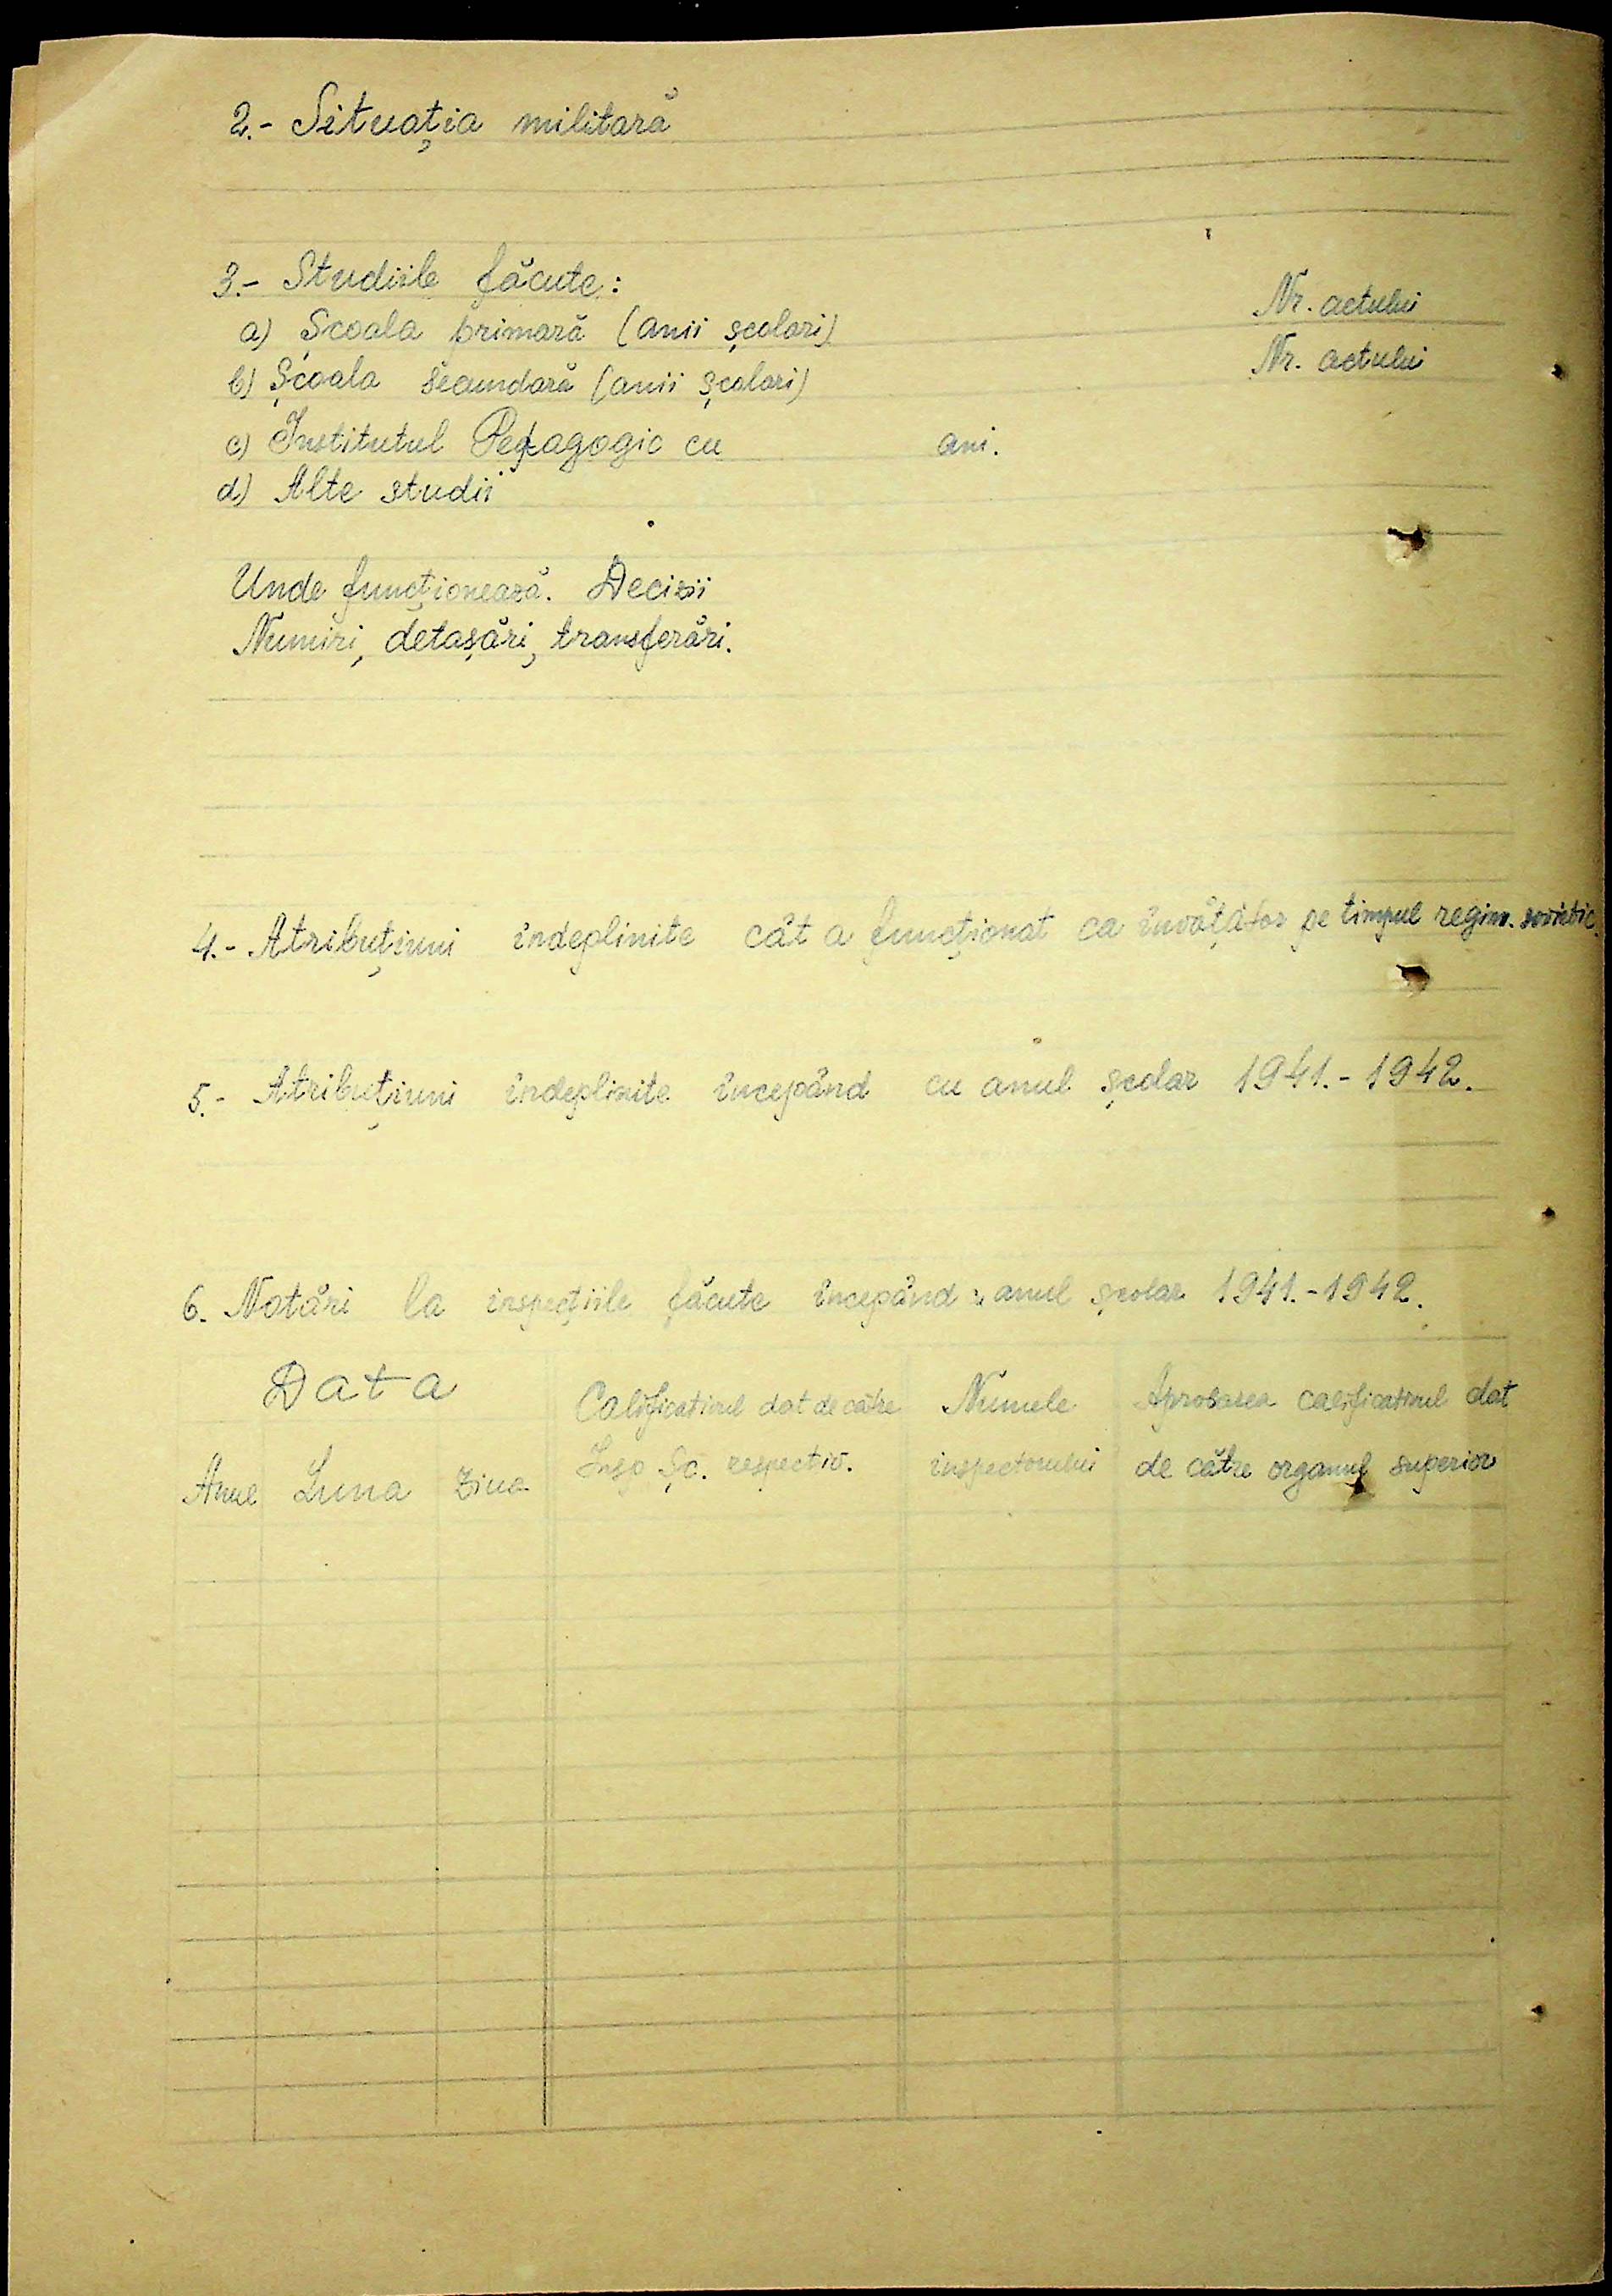 2.- Situația militară
3.- Studiile făcute:
a) Școala primară (anii școlari) Nr. actului
b) Școala secundară (anii școlari) Nr. actului
c) Institutul Pedagogic cu ani.
d) Alte studii
Unde funcționează. Decizii
Numiri, detașări, transferări.
4.- Atribuțiuni îndeplinite cât a funcționat ca învățător pe timpul regim. sovietic.
5.- Atribuțiuni îndeplinite începând cu anul școlar 1941.-1942.
6. Notări la inspecțiile făcute începând anul școlar 1941.-1942.
Data
Anul Luna Ziua
Calificativul dat de către
Insp. Șc. respectiv.
Numele
inspectorului
Aprobarea calificativul dat
de către organul superior